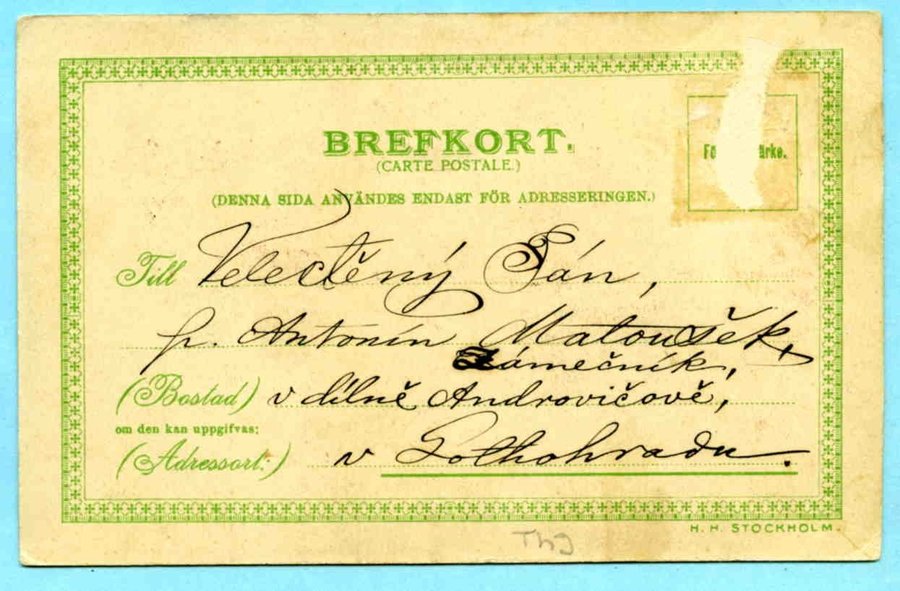 BREFKORT.
(CARTE POSTALE.)
(DENNA SIDA ANVÄNDES ENDAST FÖR ADRESSERINGEN.)
Till Velectěný Pán,
p. Antonín Matoušěk,
Zámečník,
(Bostad) v dílně Androvičově,
om den kan uppgifvas;
(Adressort:) v Gothohradu.
H. H. STOCKHOLM.
Thg